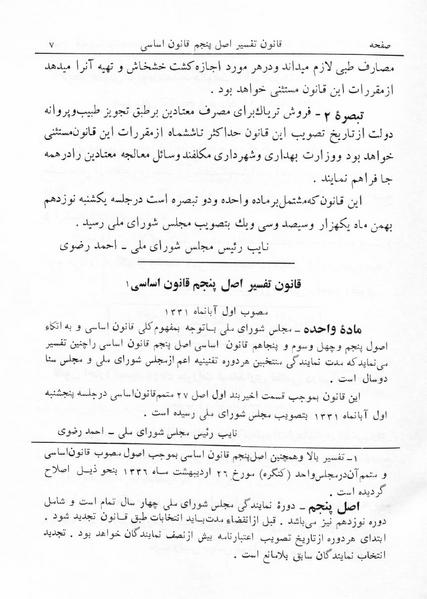 صفحه قانون تفسیر اصل پنجم قانون اساسی ۷
مصارف طبی لازم میداند ودرهر مورد اجازه کشت خشخاش و تهیه آنرا میدهد
از مقررات این قانون مستثنی خواهد بود .
تبصرهٔ ۲ - فروش تریاك برای مصرف معتادین برطبق تجویز طبیب و پروانه
دولت از تاریخ تصویب این قانون حداکثر تا ششماه از مقررات این قانون مستثنی
خواهد بود و وزارت بهداری و شهرداری مکلفند وسائل معالجه معتادین را درهمه
جا فراهم نمایند .
این قانون که مشتمل بر ماده واحده و دو تبصره است در جلسه یکشنبه نوزدهم
بهمن ماه یکهزار و سیصد و سی و یك بتصویب مجلس شورای ملی رسید .
نایب رئیس مجلس شورای ملی - احمد رضوی
قانون تفسیر اصل پنجم قانون اساسی ۱
مصوب اول آبانماه ۱۳۳۱
مادهٔ واحده - مجلس شورای ملی با توجه بمفهوم کلی قانون اساسی و به اتکاء
اصول پنجم و چهل و سوم و پنجاهم قانون اساسی اصل پنجم قانون اساسی را چنین تفسیر
می‌نماید که مدت نمایندگی منتخبین هر دوره تقنینیه اعم از مجلس شورای ملی و مجلس سنا
دو سال است .
این قانون بموجب قسمت اخیر بند اول اصل ۲۷ متمم قانون اساسی در جلسه پنجشنبه
اول آبانماه ۱۳۳۱ بتصویب مجلس شورای ملی رسیده است .
نایب رئیس مجلس شورای ملی - احمد رضوی
۱- تفسیر بالا و همچنین اصل پنجم قانون اساسی بموجب اصول مصوب قانون اساسی
و متمم آن در مجلس واحد (کنگره) مورخ ۲۶ اردیبهشت ماه ۱۳۳۶ بنحو ذیل اصلاح
گردیده است .
اصل پنجم - دورهٔ نمایندگی مجلس شورای ملی چهار سال تمام است و شامل
دوره نوزدهم نیز می‌باشد . قبل از انقضاء مدت باید انتخابات طبق قانون تجدید شود .
ابتدای هر دوره از تاریخ تصویب اعتبارنامه بیش از نصف نمایندگان خواهد بود . تجدید
انتخاب نمایندگان سابق بلامانع است .